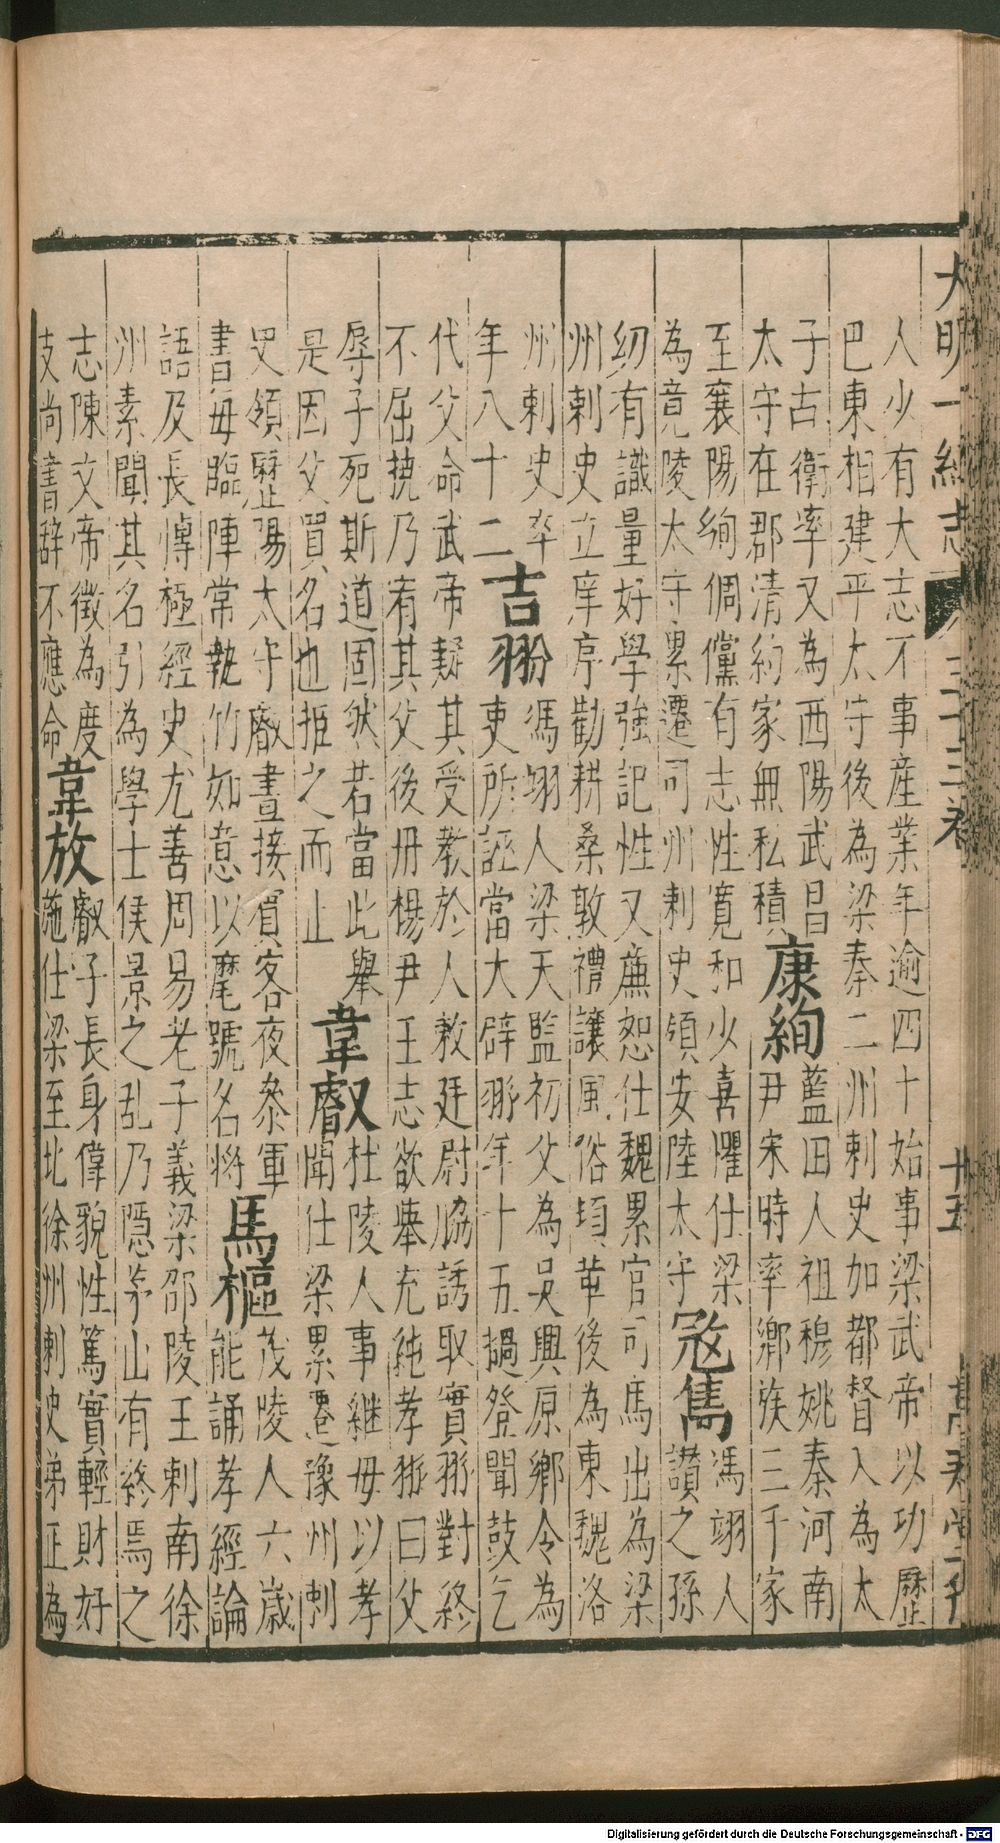 大明一統志 三十三卷 廿五 萬壽堂刊
人少有大志不事產業年逾四十始事梁武帝以功歷
巴東相建平太守後為梁秦二州刺史加都督入為太
子古衛率又為西陽武昌
太守在郡清約家無私積
康絢
藍田人祖穆姚秦河南
尹宋時率鄉族三千家
至襄陽絢倜儻有志性寬和少喜懼仕梁
為竟陵太守累遷司州刺史領安陸太守
寇雋
馮翊人
讃之孫
幼有識量好學強記性又廉恕仕魏累官司馬出為梁
州刺史立庠序勸耕桑敦禮讓風俗頃革後為東魏洛
州刺史卒
年八十二
吉翂
馮翊人梁天監初父為吳興原鄉令為
吏所誣當大辟翂年十五撾登聞鼓乞
代父命武帝疑其受教於人敕廷尉脇誘取實翂對終
不屈撓乃宥其父後丹楊尹王志欲舉充純孝翂曰父
辱子死斯道固然若當此舉
是因父買名也拒之而止
韋叡
杜陵人事繼母以孝
聞仕梁累遷豫州刺
史領歷陽太守叡晝接賓客夜叅軍
書每臨陣常執竹如意以麾號名將
馬樞
茂陵人六歲
能誦孝經論
語及長博極經史尤善周易老子義梁邵陵王刺南徐
州素聞其名引為學士侯景之乱乃隠茅山有終焉之
志陳文帝徵為度
支尚書辭不應命
韋放
叡子長身偉貌性篤實輕財好
施仕梁至北徐州刺史弟正為
Digitalisierung gefördert durch die Deutsche Forschungsgemeinschaft - DFG